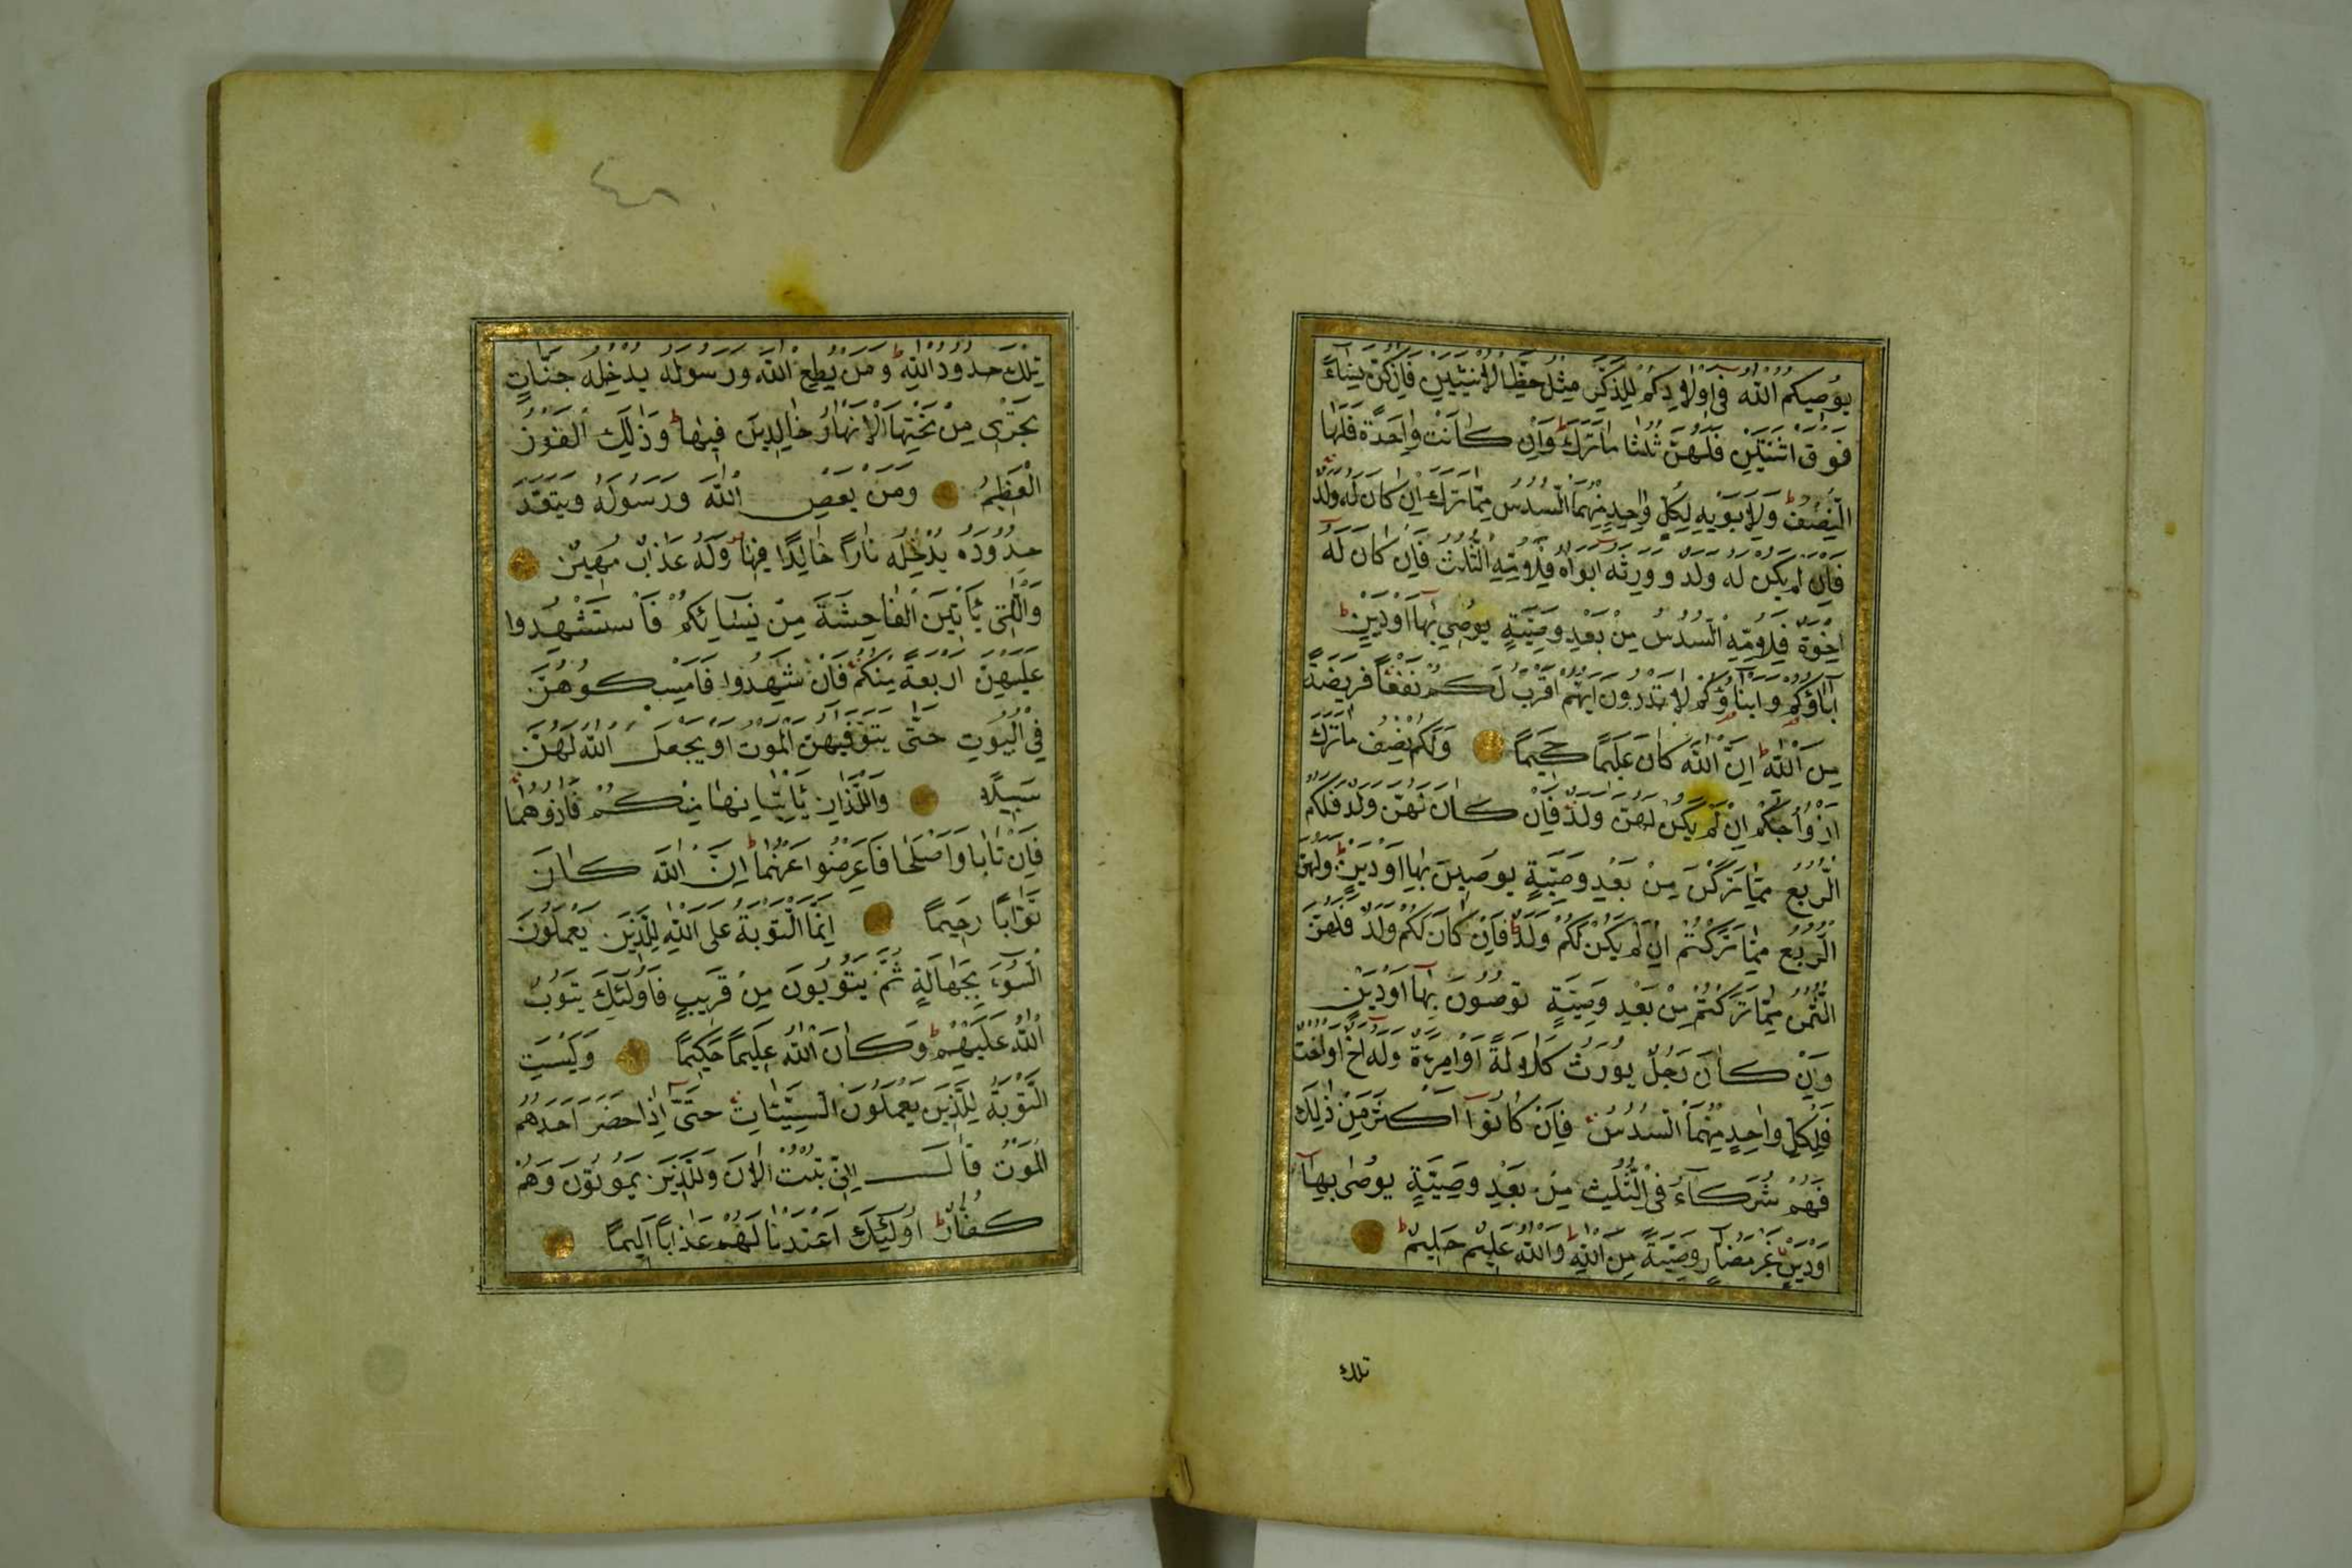 يُوصِيكُمُ اللّٰهُ فِى اَوْلَادِكُمْ لِلذَّكَرِ مِثْلُ حَظِّ الْاُنْثَيَيْنِ فَاِنْ كُنَّ نِسَاءً
فَوْقَ اثْنَتَيْنِ فَلَهُنَّ ثُلُثَا مَا تَرَكَ وَاِنْ كَانَتْ وَاحِدَةً فَلَهَا
النِّصْفُ وَلِاَبَوَيْهِ لِكُلِّ وَاحِدٍ مِنْهُمَا السُّدُسُ مِمَّا تَرَكَ اِنْ كَانَ لَهُ وَلَدٌ
فَاِنْ لَمْ يَكُنْ لَهُ وَلَدٌ وَوَرِثَهُ اَبَوَاهُ فَلِاُمِّهِ الثُّلُثُ فَاِنْ كَانَ لَهُ
اِخْوَةٌ فَلِاُمِّهِ السُّدُسُ مِنْ بَعْدِ وَصِيَّةٍ يُوصِى بِهَا اَوْ دَيْنٍ
اٰبَاؤُكُمْ وَاَبْنَاؤُكُمْ لَا تَدْرُونَ اَيُّهُمْ اَقْرَبُ لَكُمْ نَفْعًا فَرِيضَةً
مِنَ اللّٰهِ اِنَّ اللّٰهَ كَانَ عَلِيمًا حَكِيمًا وَلَكُمْ نِصْفُ مَا تَرَكَ
اَزْوَاجُكُمْ اِنْ لَمْ يَكُنْ لَهُنَّ وَلَدٌ فَاِنْ كَانَ لَهُنَّ وَلَدٌ فَلَكُمُ
الرُّبُعُ مِمَّا تَرَكْنَ مِنْ بَعْدِ وَصِيَّةٍ يُوصِينَ بِهَا اَوْ دَيْنٍ وَلَهُنَّ
الرُّبُعُ مِمَّا تَرَكْتُمْ اِنْ لَمْ يَكُنْ لَكُمْ وَلَدٌ فَاِنْ كَانَ لَكُمْ وَلَدٌ فَلَهُنَّ
الثُّمُنُ مِمَّا تَرَكْتُمْ مِنْ بَعْدِ وَصِيَّةٍ تُوصُونَ بِهَا اَوْ دَيْنٍ
وَاِنْ كَانَ رَجُلٌ يُورَثُ كَلَالَةً اَوِ امْرَءَةٌ وَلَهُ اَخٌ اَوْ اُخْتٌ
فَلِكُلِّ وَاحِدٍ مِنْهُمَا السُّدُسُ فَاِنْ كَانُوا اَكْثَرَ مِنْ ذٰلِكَ
فَهُمْ شُرَكَاءُ فِى الثُّلُثِ مِنْ بَعْدِ وَصِيَّةٍ يُوصٰى بِهَا
اَوْ دَيْنٍ غَيْرَ مُضَارٍّ وَصِيَّةً مِنَ اللّٰهِ وَاللّٰهُ عَلِيمٌ حَلِيمٌ
تلك
تِلْكَ حُدُودُ اللّٰهِ وَمَنْ يُطِعِ اللّٰهَ وَرَسُولَهُ يُدْخِلْهُ جَنَّاتٍ
تَجْرِى مِنْ تَحْتِهَا الْاَنْهَارُ خَالِدِينَ فِيهَا وَذٰلِكَ الْفَوْزُ
الْعَظِيمُ وَمَنْ يَعْصِ اللّٰهَ وَرَسُولَهُ وَيَتَعَدَّ
حُدُودَهُ يُدْخِلْهُ نَارًا خَالِدًا فِيهَا وَلَهُ عَذَابٌ مُهِينٌ
وَالّٰتِى يَأْتِينَ الْفَاحِشَةَ مِنْ نِسَائِكُمْ فَاسْتَشْهِدُوا
عَلَيْهِنَّ اَرْبَعَةً مِنْكُمْ فَاِنْ شَهِدُوا فَاَمْسِكُوهُنَّ
فِى الْبُيُوتِ حَتّٰى يَتَوَفّٰيهُنَّ الْمَوْتُ اَوْ يَجْعَلَ اللّٰهُ لَهُنَّ
سَبِيلًا وَالَّذَانِ يَأْتِيَانِهَا مِنْكُمْ فَاٰذُوهُمَا
فَاِنْ تَابَا وَاَصْلَحَا فَاَعْرِضُوا عَنْهُمَا اِنَّ اللّٰهَ كَانَ
تَوَّابًا رَحِيمًا اِنَّمَا التَّوْبَةُ عَلَى اللّٰهِ لِلَّذِينَ يَعْمَلُونَ
السُّوءَ بِجَهَالَةٍ ثُمَّ يَتُوبُونَ مِنْ قَرِيبٍ فَاُولٰئِكَ يَتُوبُ
اللّٰهُ عَلَيْهِمْ وَكَانَ اللّٰهُ عَلِيمًا حَكِيمًا وَلَيْسَتِ
التَّوْبَةُ لِلَّذِينَ يَعْمَلُونَ السَّيِّئَاتِ حَتّٰى اِذَا حَضَرَ اَحَدَهُمُ
الْمَوْتُ قَالَ اِنِّى تُبْتُ الْاٰنَ وَلَا الَّذِينَ يَمُوتُونَ وَهُمْ
كُفَّارٌ اُولٰئِكَ اَعْتَدْنَا لَهُمْ عَذَابًا اَلِيمًا